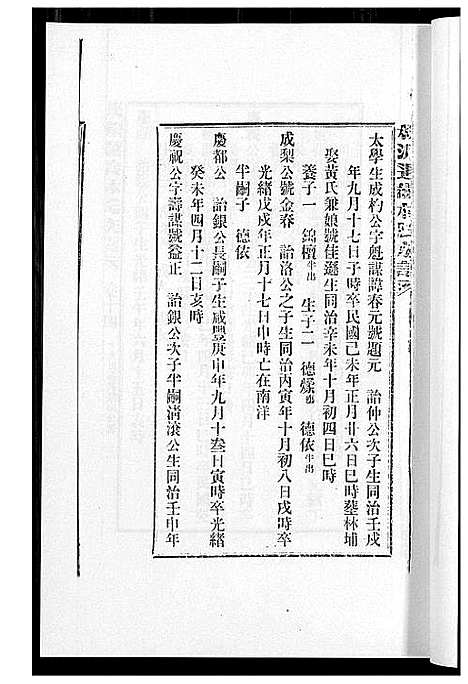 太學生成杓公字魁謀諱春元號題元 詒仲公次子生同治壬戌
年九月十七日子時卒民國己未年正月廿六日巳時塟林埔
娶黃氏兼娘號佳遜生同治辛未年十月初四日巳時
養子一 錦檀半出 生子二 德燦 德依半出
成梨公號金春 詒洛公之子生同治丙寅年十月初八日戌時卒
光緒戊戌年正月十七日申時亡在南洋
半嗣子 德依
慶都公 詒銀公長嗣子生咸豐庚申年九月十叁日寅時卒光緒
癸未年四月十二日亥時
慶祝公字壽謀號益正 詒銀公次子半嗣清滾公生同治壬申年